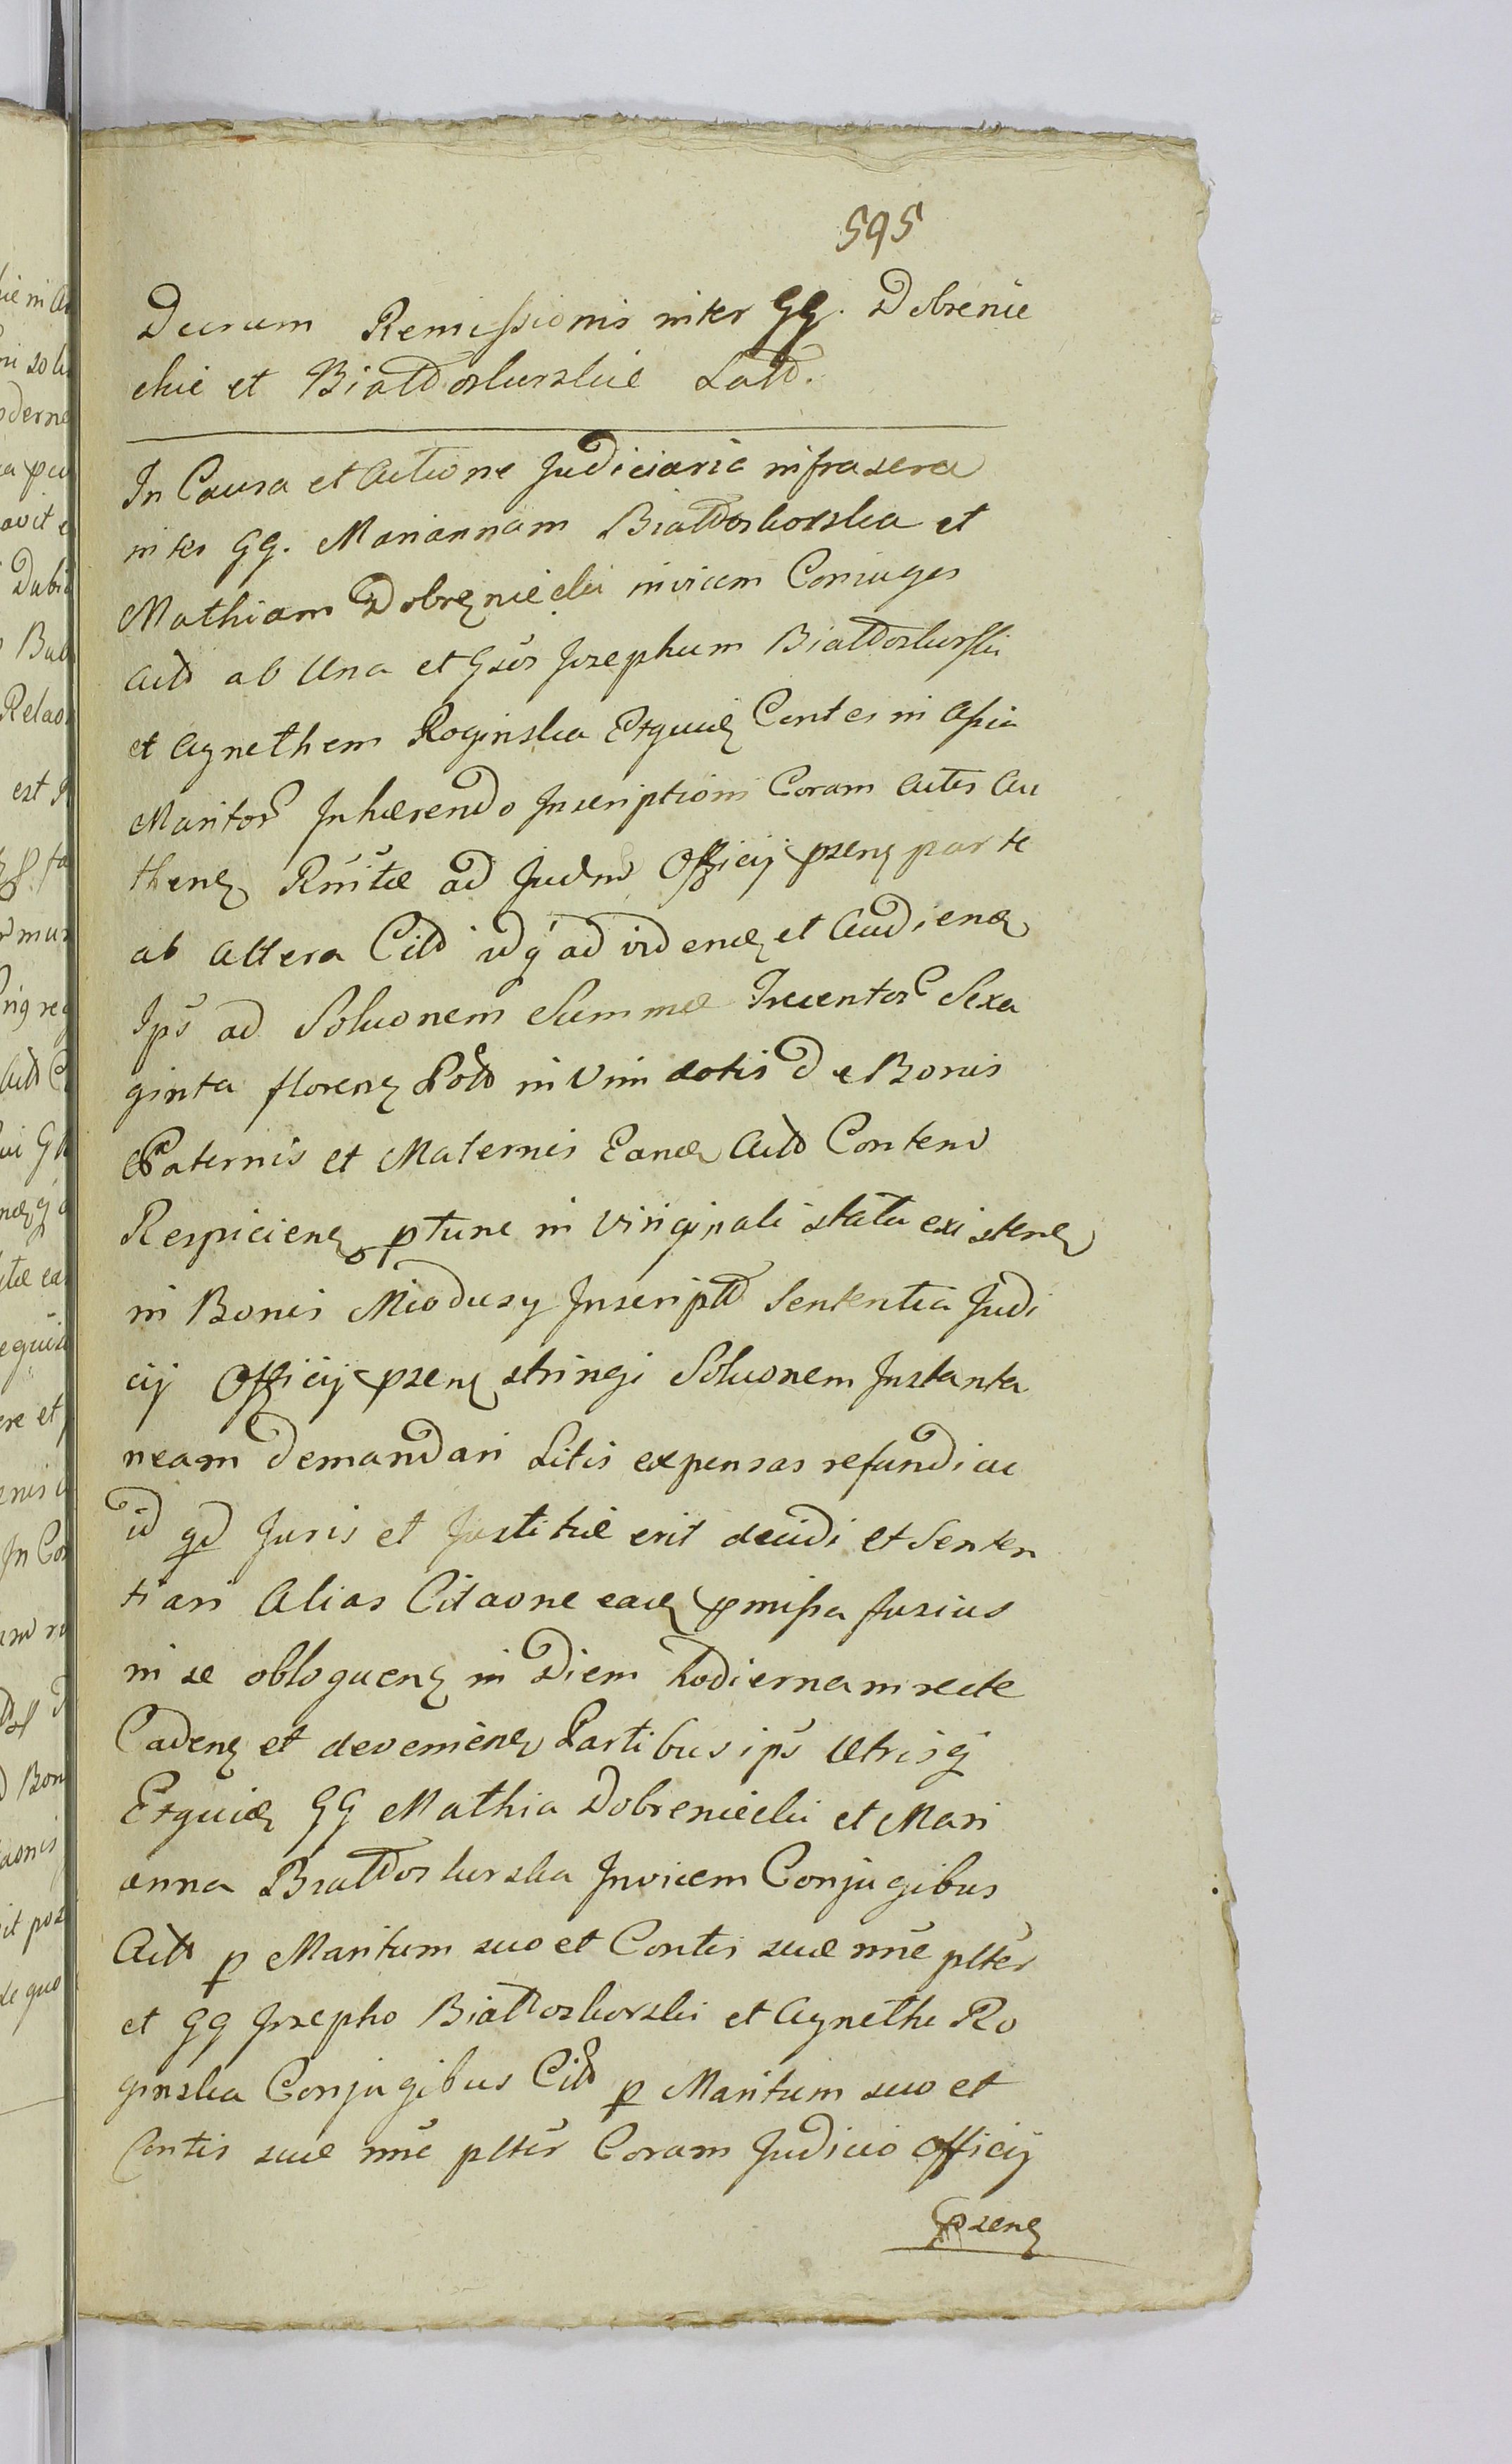 595
Decrum Remissionis inter GG. Dobrenie
ckie et Białłoskurskie Latd.
In Causa et Actione Judiciaria infrascra
inter GG. Mariannam Białłoskorska et
Mathiam Dobrzniecki invicem Coniuges
Actd ab Una et Gsos Josephum Białłoskurski
et Agnethem Roginska Conles in Assia
Maritor Inhærendo Inscriptioni Coram Actis Au
thenz ad Judm Officij pzenz parte
ab Altera Citd idq ad vidend et Audiend
Ips ad Soluonem Summæ Trecentor Sexa
ginta florenz Pold in Vim dotis de Bonis
Paternis et Maternis Eand Actd Contend
Respicienz ptunc in Virginali statu existenz
in Bonis Miodusy Inscriptd Sententia Judi
cij Officij pzenz stringi Soluonem Instanta
neam demandari Litis expensas refundi ac
id qd Juris et Justitiæ erit decidi et Senten
tiari Alias Citaone eacz pmissa fusius
in se obloquenz in Diem hodiernam recte
Cadenz et devenienz Partibus ips Utrisq
GG Mathia Dobreniecki et Mari
anna Białłoskurska Invicem Conjugibus
Actd p Maritum suo et Contis suæ nne plter
et GG Josepho Białłoskorski et Agnethe Ro
ginska Conjugibus Citd p Maritum suo et
Contis suæ nne plter Coram Judicio Officij
pzenz